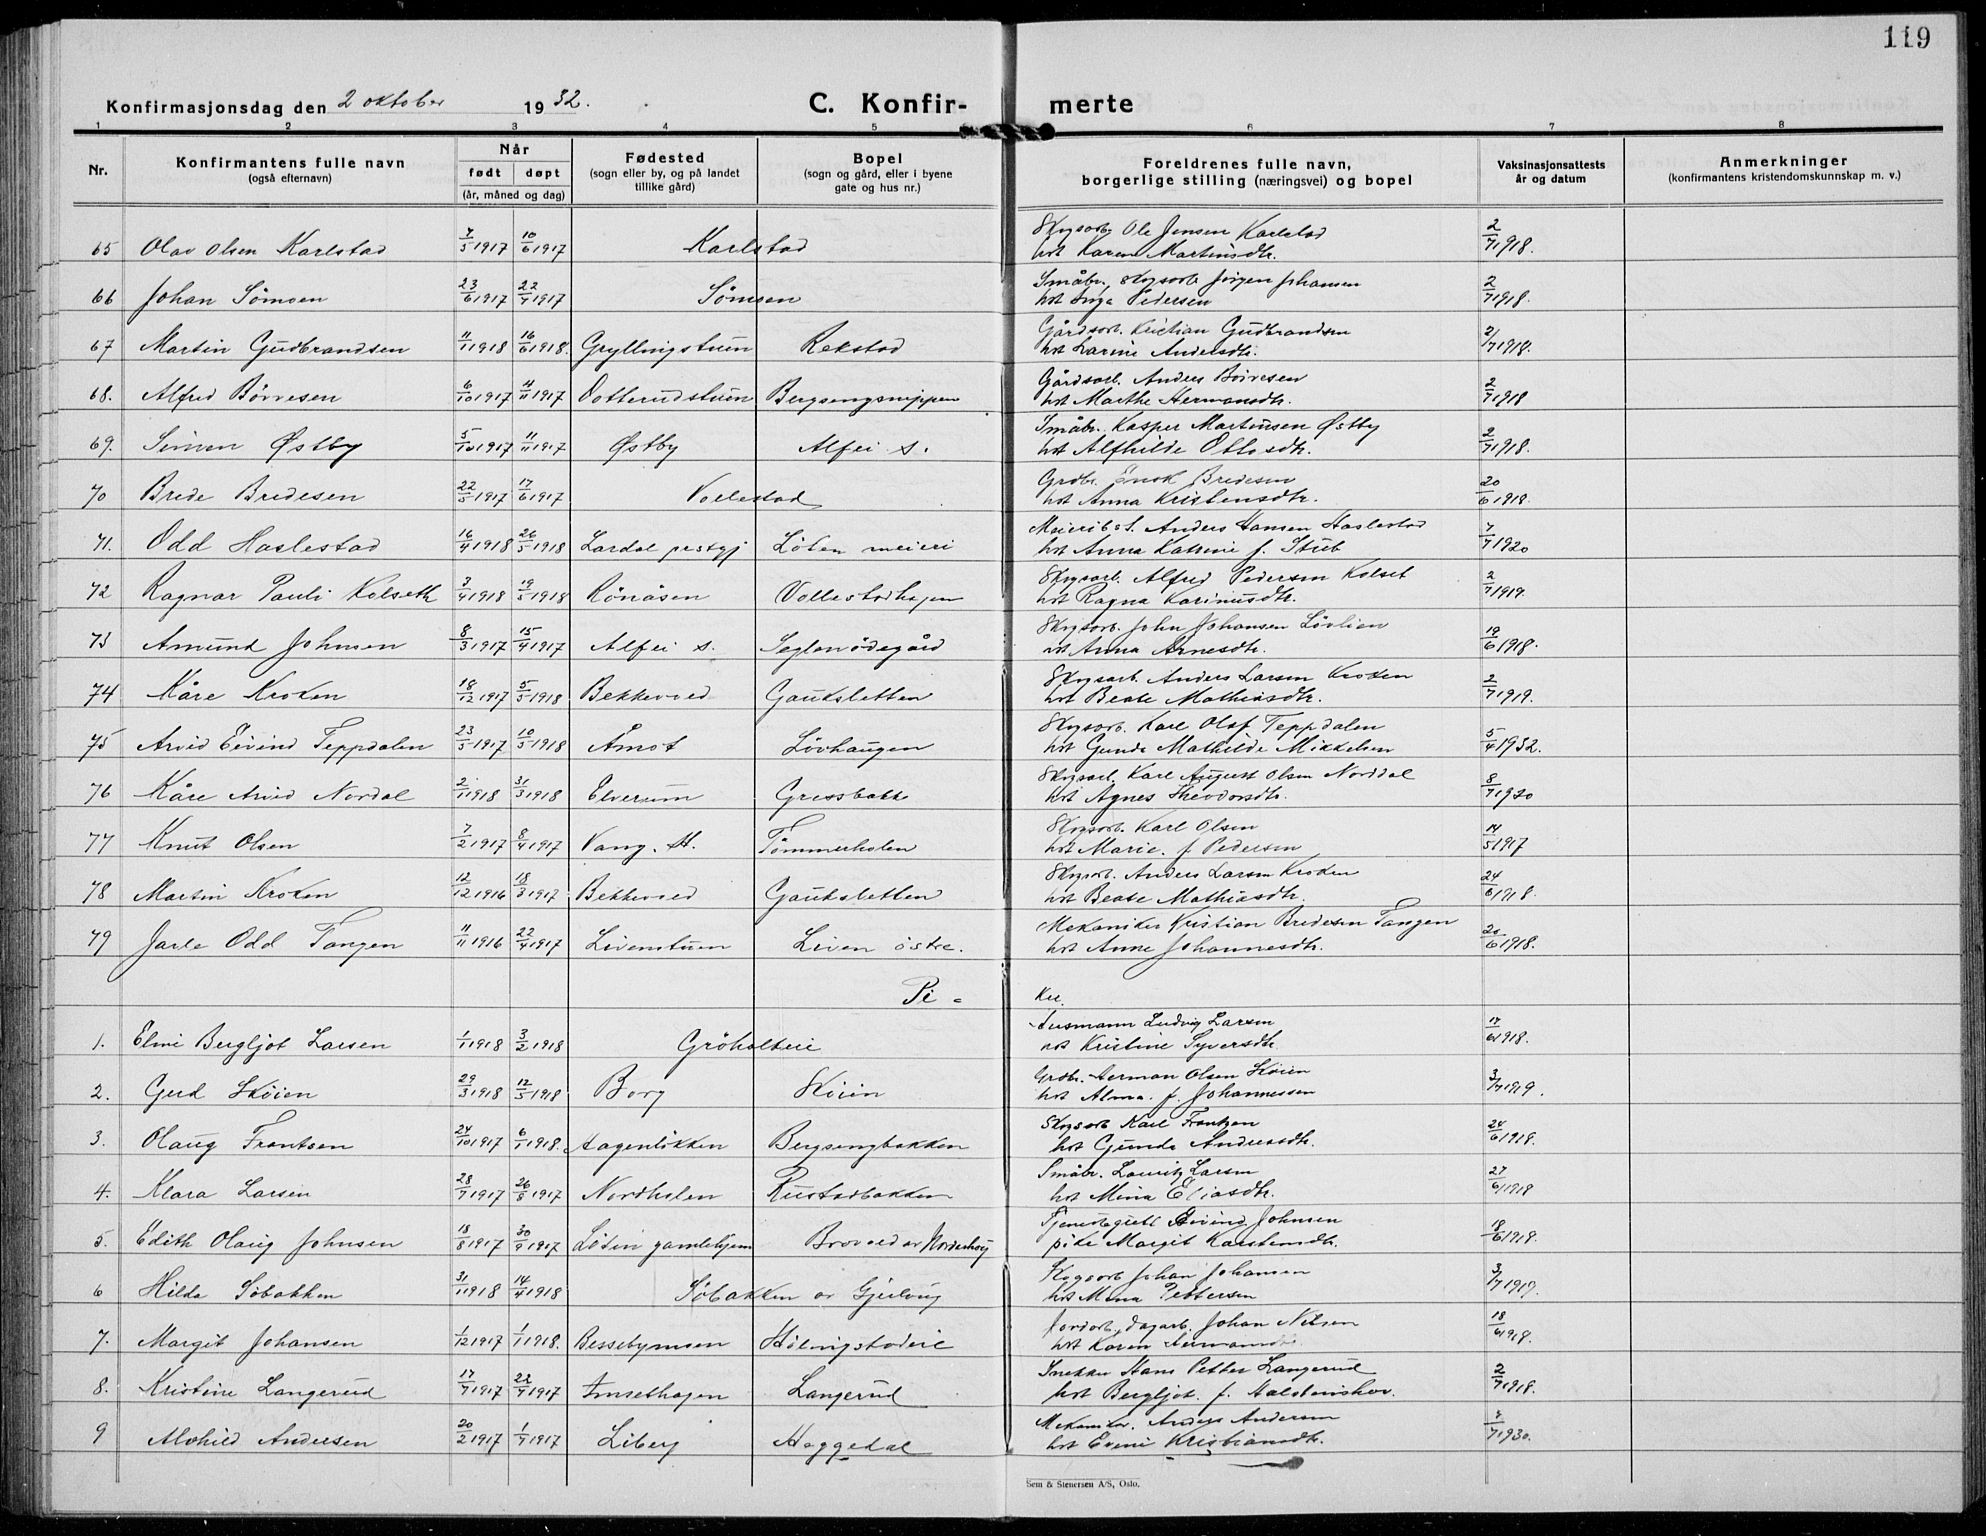 119
Konfirmasjonsdag den 2 oktober 1932. C. Konfir- merte
1 2 3 4 5 6 7 8
Nr. Konfirmantens fulle navn (også efternavn) Når født døpt (år, måned og dag) Fødested (sogn eller by, og på landet tillike gård) Bopel (sogn og gård, eller i byene gate og hus nr.) Foreldrenes fulle navn, borgerlige stilling (næringsvei) og bopel Vaksinasjonsattests år og datum Anmerkninger (konfirmantens kristendomskunnskap m. v.)
65 Olav Olsen Karlstad 7/5 1917 10/6 1917 Karlstad Skogsarb. Ole Jensen Karlstad 2/7 1918.
hst Karen Martinsdtr.
66 Johan Sömoen 23/6 1917 22/7 1917 Sömoen Småbr., skogsarb. Jörgen Johansen 2/7 1918.
hst Inga Pedersen
67 Martin Gudbrandsen 11/1 1918 16/6 1918. Gryllingstuen Rekstad Gårdsarb. Kristian Gudbrandsen 2/7 1918.
hst Larine Andersdtr.
68. Alfred Börresen 6/10 1917 4/11 1917 Ootterudstuen Bergsengsnippen Gårdsarb. Anders Börresen 2/7 1918
hst Marthe Hermansdtr.
69. Simen Østby 5/10 1917 11/11 1917 Østby Alfei s. Småbr. Kasper Martinsen Østby 2/7 1918.
hst Alfhilde Ottosdtr.
70 Brede Bredesen 22/5 1917 17/6 1917 Vollestad Grdbr. Enok Bredesen 20/6 1918.
hst Anna Kristensdtr.
71. Odd Haslestad 16/4 1918 26/5 1918 Lardal prstgj Löten meieri Meieribst. Anders Hansen Haslestad 7/7 1920
hst Anna Katrine f. Stub
72 Ragnar Pauli Kolseth 3/4 1918 19/5 1918 Rönåsen Vollestadhagen Skogsarb. Alfred Pedersen Kolset 2/7 1919.
hst Ragna Karinusdtr.
73 Amund Johnsen 8/3 1917 15/4 1917 Alfei s. Seglanödegård Skogsarb. John Johansen Lövlien 19/6 1918.
hst Anna Arnesdtr.
74 Kåre Kroken 18/12 1917 5/5 1918 Bekkevold Gaukslетten Skogsarb. Anders Larsen Kroken 2/7 1919.
hst Beate Mathiasdtr.
75 Arvid Eivind Teppdalen 23/5 1917 10/5 1918 Åmot Lövhaugen Skogsarb. Karl Olaf Teppdalen 5/4 1932.
hst Gunda Mathilde Mikkelsen
76 Kåre Arvid Nordal 2/1 1918 31/3 1918 Elverum Gressbakk Skogsarb. Karl August Olsen Norddal 8/7 1920
hst Agnes Theodorsdtr.
77 Knut Olsen 7/2 1917 8/4 1917 Vang. H. Tömmerholen Skogsarb. Karl Olsen 14/5 1917
hst Marie. f Pedersen
78 Martin Kroken 12/12 1916 18/3 1917. Bekkevold Gaukslеtten Skogsarb. Anders Larsen Kroken 24/6 1918.
hst Beate Mathiasdtr.
79 Jarle Odd Tangen 11/11 1916 22/4 1917 Livenstuen Liven östre. Mekaniker Kristian Bredesen Tangen 20/6 1918.
hst Anne Johannesdtr.
Pi - ker.
1. Elmi Bergljot Larsen 1/1 1918 3/2 1918 Gröholteie Husmann Ludvig Larsen 17/6 1918.
hst Kristine Syversdtr.
2. Gerd Sköien 29/3 1918 12/5 1918 Borg Sköien Grdbr. Herman Olsen Sköien 3/7 1919.
hst Alma. f. Johannessen
3. Olaug Frantsen 24/10 1917 6/1 1918. Hagenlökken Bergsengbakken Skogsarb Karl Frantzen 24/6 1918.
hst Gunda Andreasdtr.
4. Klara Larsen 28/7 1917 26/8 1917 Nordholen Rustadbakken Småbr. Lauritz Larsen 27/6 1918
hst Mina Eliasdtr.
5. Edith Olaug Johnsen 18/8 1917 30/9 1917 Löten gamlehjem Brovold av Norderhov Tjenestegutt Eivind Johnsen 18/6 1918.
pike Margit Karstensdtr.
6 Hilda Söbakken 31/1 1918 14/4 1918 Söbakken av Gjeilvug Skogsarb Johan Johansen 3/7 1919.
hst Mina Pettersen
7. Margit Johansen 1/12 1917 1/1 1918. Bessebymoen Hölingstadeie Jordarb., dagarb. Johan Nilsen 18/6 1918.
hst Karen Hermansd
8. Kristine Langerud 17/7 1917 22/7 1917 Imsethagen Langerud Snekker Hans Petter Langerud 2/7 1918.
hst Bergljot. f. Halstenshov.
9 Alvhild Andersen 20/2 1917 1/4 1917 Liberg Heggedal Mekaniker. Anders Andersen 7/7 1930.
hst Evine Kristiansdtr.
Sem & Stenersen A/S, Oslo.